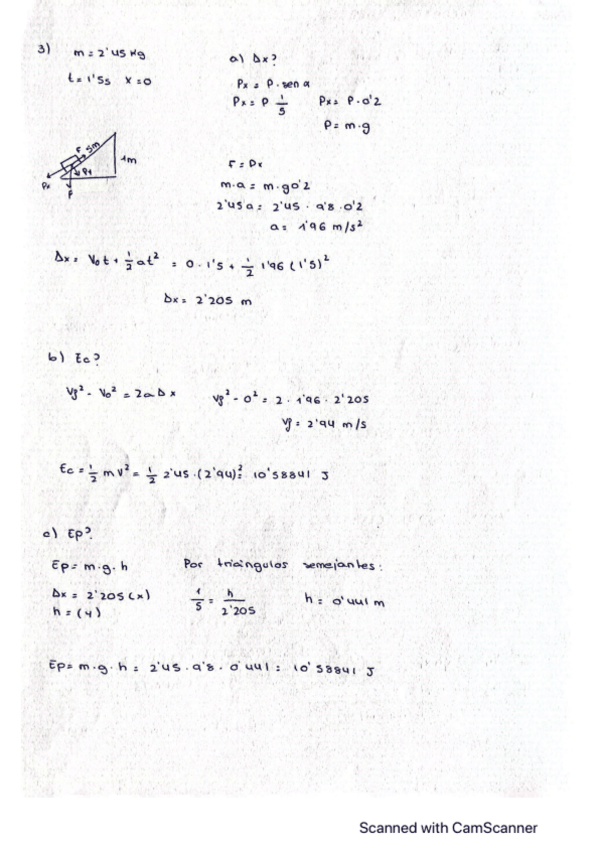 3) m = 2'45 Kg
t = 1'5s x = 0
a) Δx?
Px = P · sen α
Px = P 1/5 Px = P · 0'2
P = m · g
F 5m
1m
Px Py
P
F = Px
m · a = m · g 0'2
2'45 a = 2'45 · 9'8 · 0'2
a = 1'96 m/s²
Δx = V₀t + 1/2 at² = 0 · 1'5 + 1/2 1'96 (1'5)²
Δx = 2'205 m
b) Ec?
Vf² - V₀² = 2aΔx Vf² - 0² = 2 · 1'96 · 2'205
Vf = 2'94 m/s
Ec = 1/2 mV² = 1/2 2'45 · (2'94)² = 10'58841 J
c) Ep?
Ep = m · g · h Por triángulos semejantes:
Δx = 2'205 (x) 1/5 = h/2'205 h = 0'441 m
h = (y)
Ep = m · g · h = 2'45 · 9'8 · 0'441 = 10'58841 J
Scanned with CamScanner